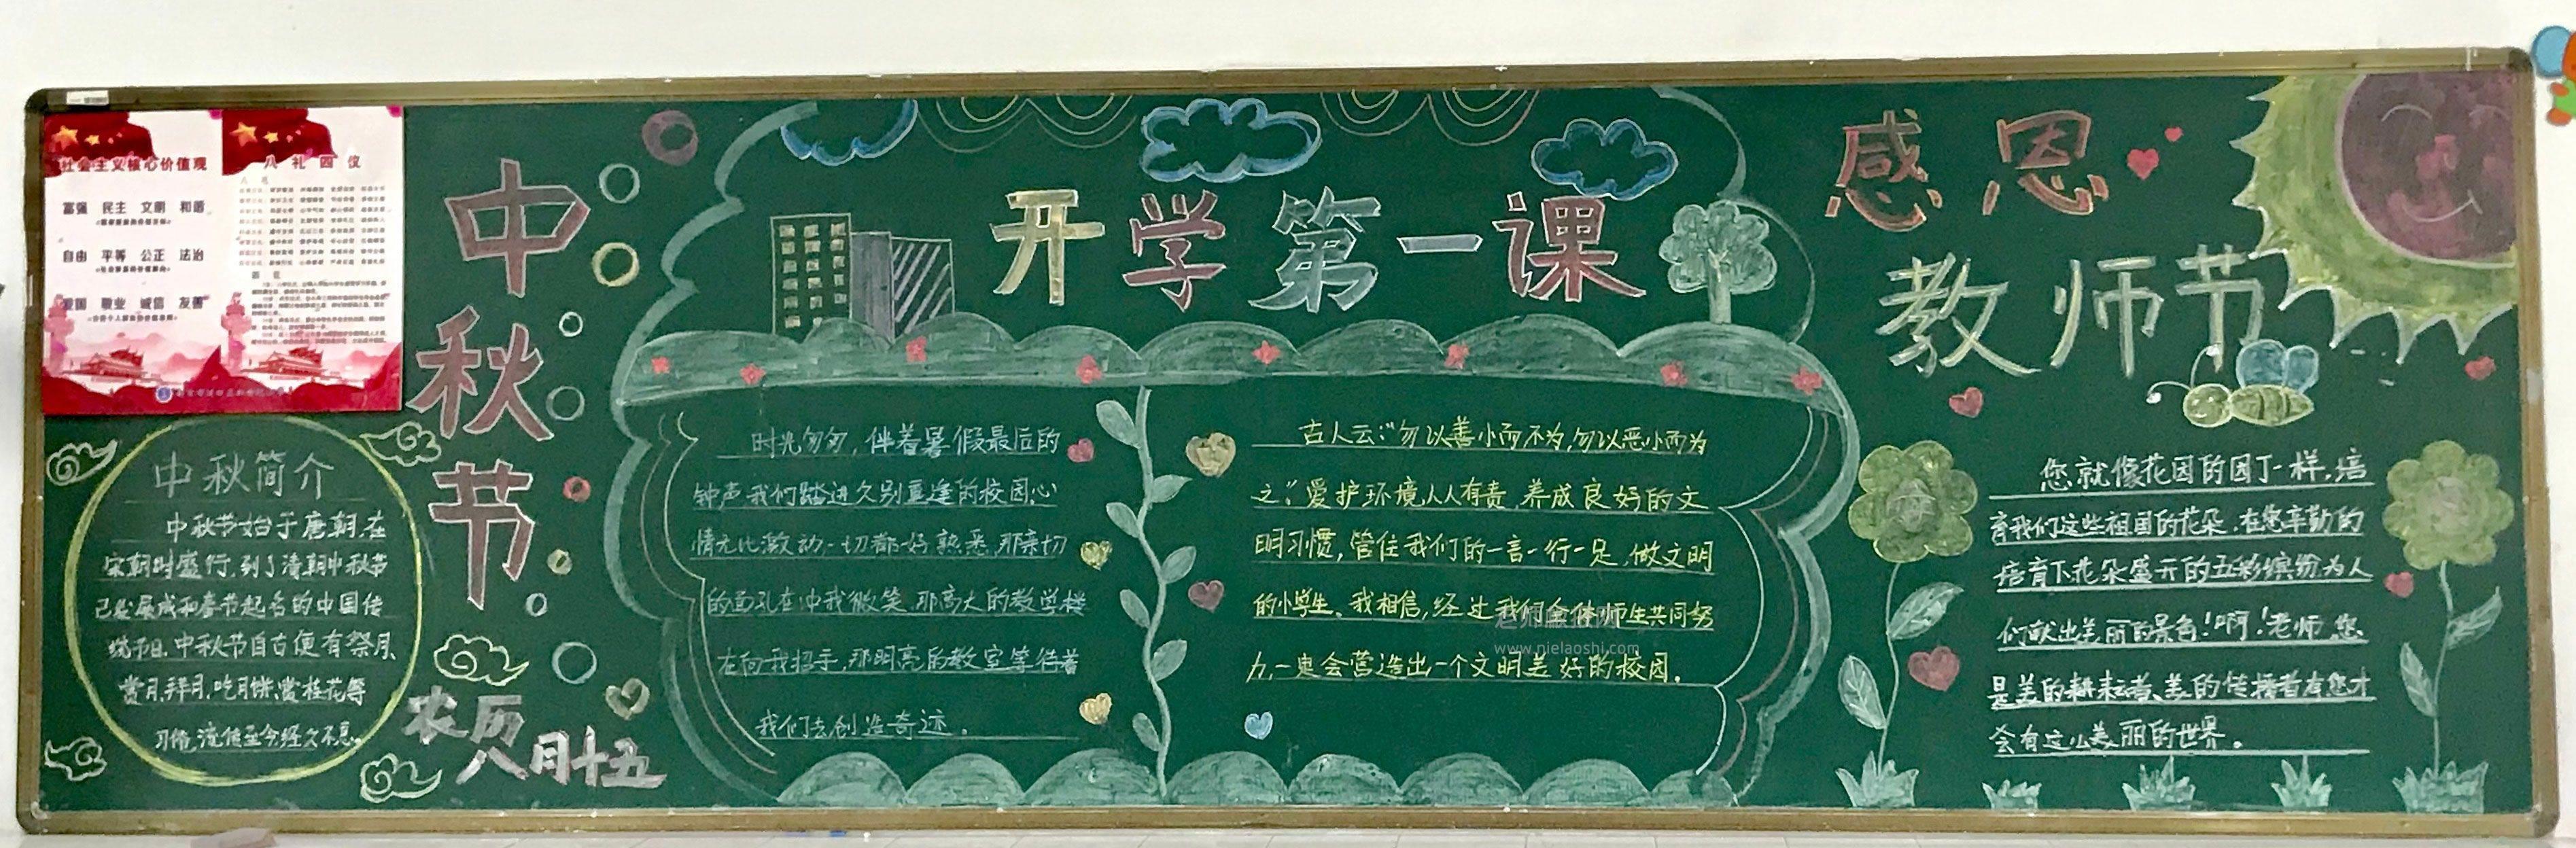 社会主义核心价值观
富强 民主 文明 和谐
自由 平等 公正 法治
爱国 敬业 诚信 友善
八礼四仪
中秋节
农历
八月十五
中秋简介
中秋节始于唐朝,在
宋朝时盛行,到了清朝中秋节
已发展成和春节起名的中国传
统节日,中秋节自古便有祭月,
赏月,拜月,吃月饼,赏桂花等
习俗,流传至今经久不息。
开学第一课
时光匆匆,伴着暑假最后的
钟声我们踏进久别重逢的校园,心
情无比激动一切都好熟悉,那亲切
的面孔在冲我微笑,那高大的教学楼
在向我招手,那明亮的教室等待着
我们去创造奇迹。
古人云:“勿以善小而不为,勿以恶小而为
之”爱护环境人人有责,养成良好的文
明习惯,管住我们的一言一行一足,做文明
的小学生。我相信,经过我们全体师生共同努
力,一定会营造出一个文明美好的校园。
www.nielaoshi.com
感恩
教师节
您就像花园的园丁一样,培
育我们这些祖国的花朵,在您辛勤的
培育下花朵盛开的五彩缤纷为人
们献出美丽的景色!啊!老师,您
是美的耕耘者,美的传播者有您才
会有这么美丽的世界。